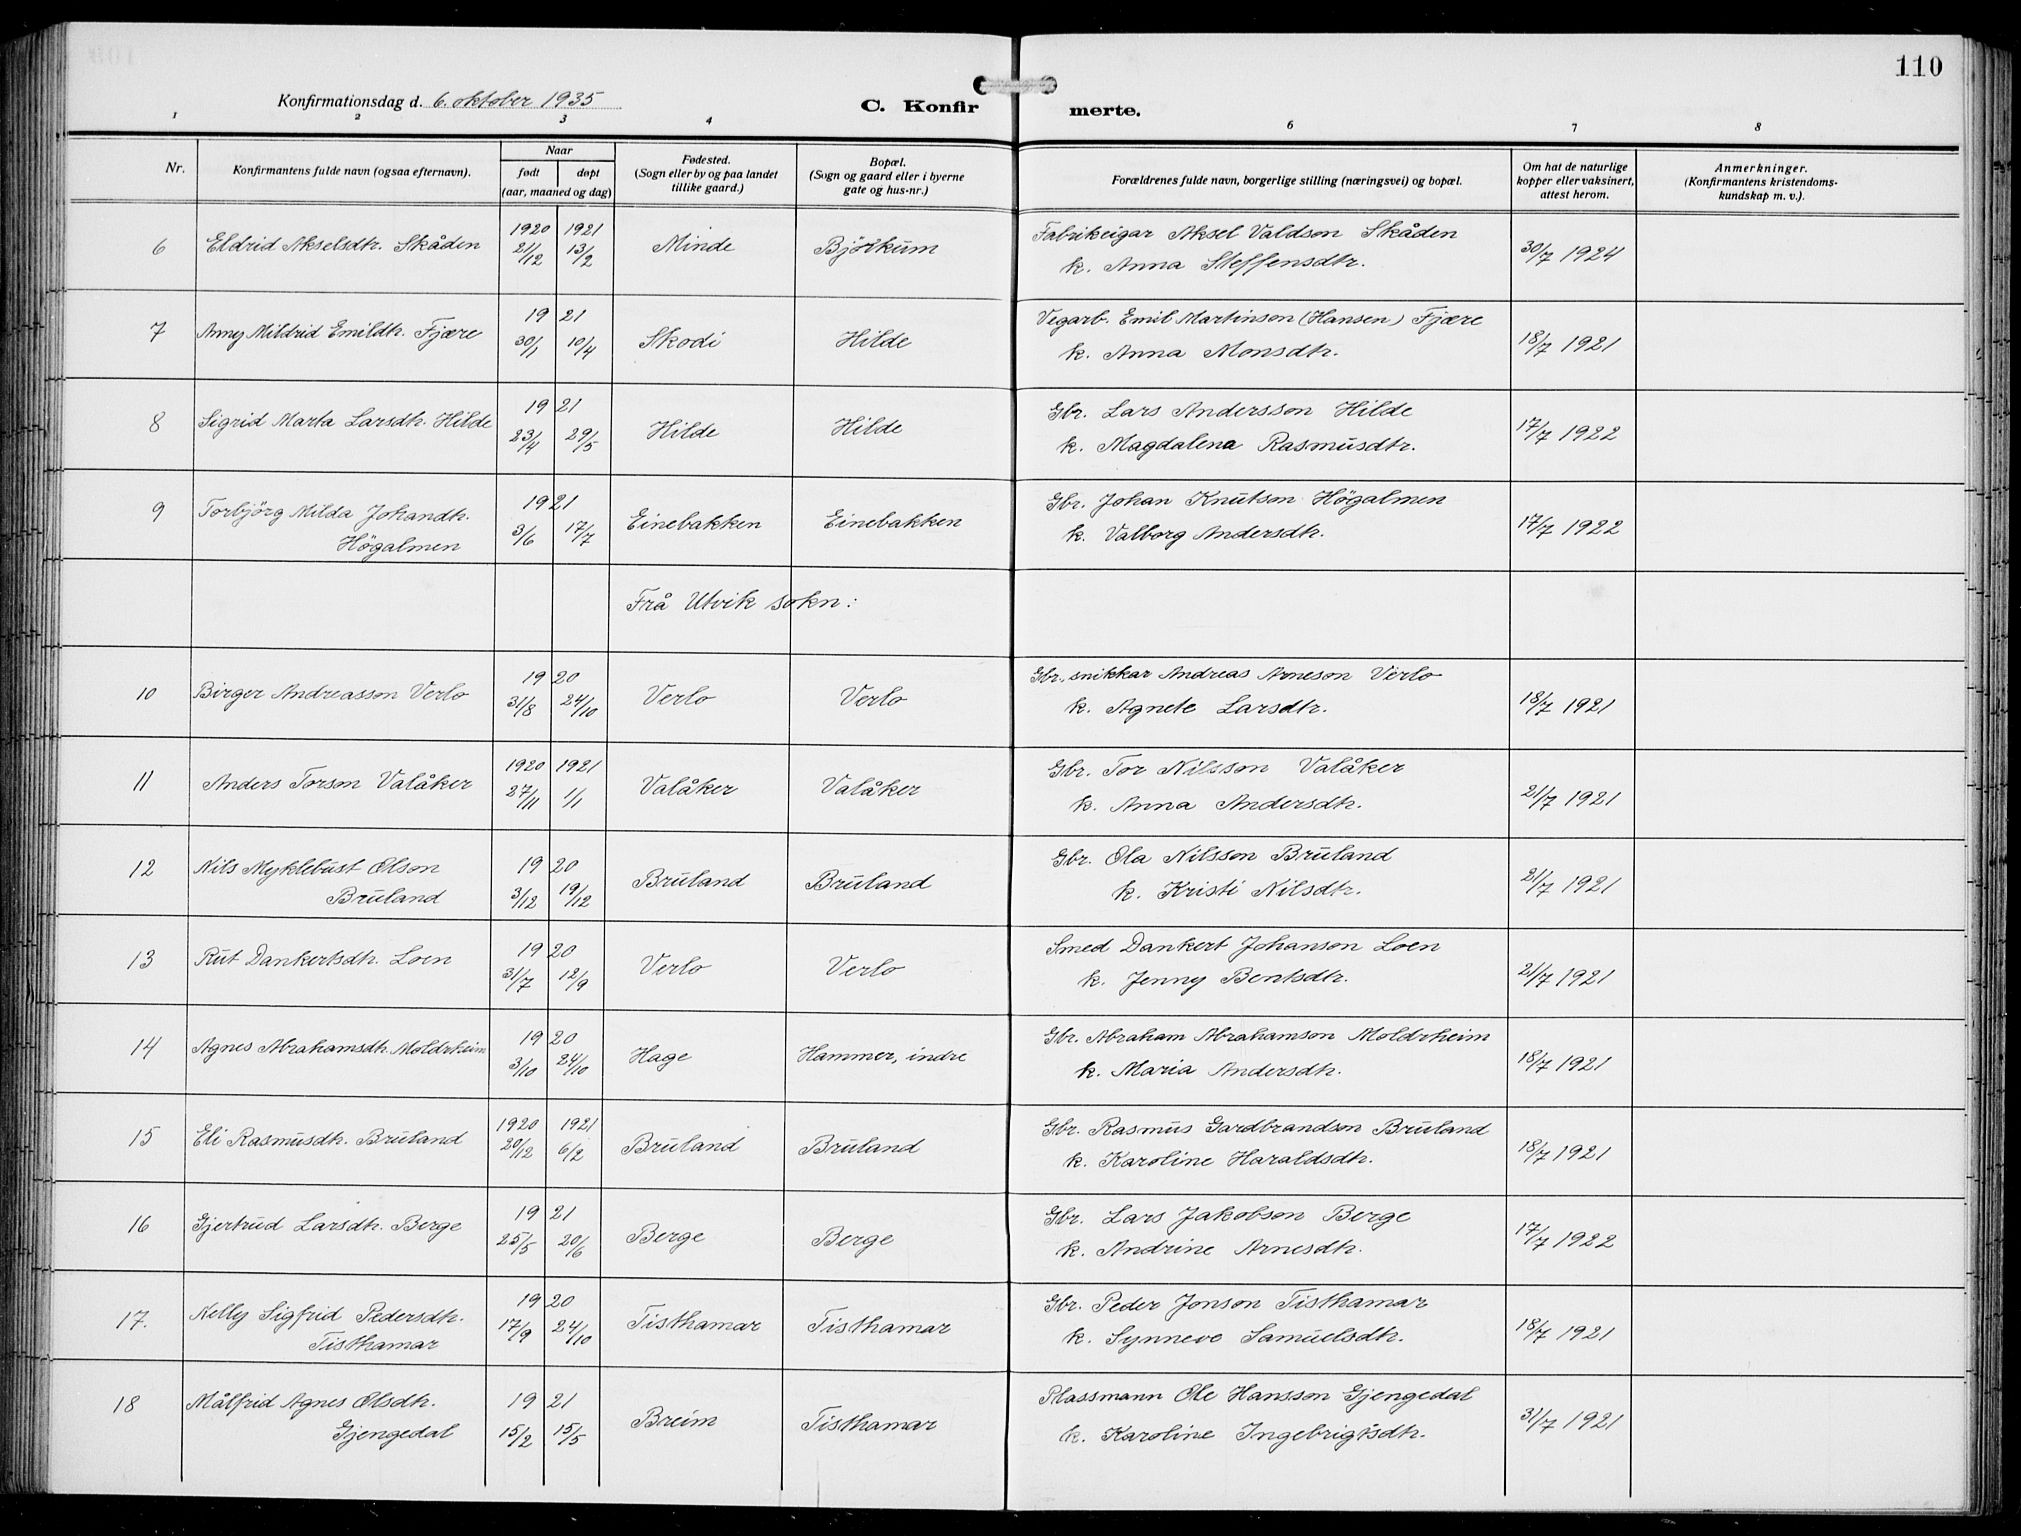 110
Konfirmationsdag d. 6. oktober 1935
C. Konfirmerte.
1 2 3 4 6 7 8
Nr. Konfirmantens fulde navn (ogsaa efternavn). Naar født døpt (aar, maaned og dag) Fødested. (Sogn eller by og paa landet tillike gaard.) Bopæl. (Sogn og gaard eller i byerne gate og hus-nr.) Forældrenes fulde navn, borgerlige stilling (næringsvei) og bopæl. Om hat de naturlige kopper eller vaksinert, attest herom. Anmerkninger. (Konfirmantens kristendomskundskap m. v.).
6 Eldrid Akselsdtr. Skåden 1920 21/12 1921 13/2 Minde Björkum Fabrikeigar Aksel Valdson Skåden
k. Anna Steffensdtr. 30/7 1924
7 Anny Mildrid Emildtr. Fjære 1921 30/1 10/4 Skodi Hilde Vegarb. Emil Martinson (Hansen) Fjære
k. Anna Monsdtr. 18/7 1921
8 Sigrid Marta Larsdtr. Hilde 1921 23/4 29/5 Hilde Hilde Gbr. Lars Andersson Hilde
k. Magdalena Rasmusdtr. 17/7 1922
9 Torbjörg Milda Johandtr. 1921 3/6 17/7 Einebakken Einebakken Gbr. Johan Knutson Högalmen
Högalmen k. Valborg Andersdtr. 17/7 1922
Frå Utvik sokn:
10 Birger Andreasson Verlo 1920 31/8 24/10 Verlo Verlo Gbr., snikkar Andreas Arneson Verlo
k. Agnete Larsdtr. 18/7 1921
11 Anders Torson Valåker 1920 27/11 1921 1/1 Valåker Valåker Gbr. Tor Nilsson Valåker
k. Anna Andersdtr. 21/7 1921
12 Nils Myklebust Olson 1920 3/12 19/12 Bruland Bruland Gbr. Ola Nilsson Bruland
Bruland k. Kristi Nilsdtr. 21/7 1921
13 Rut Dankertsdtr. Loen 1920 31/7 12/9 Verlo Verlo Smed Dankert Johanson Loen
k. Jenny Bentsdtr. 21/7 1921
14 Agnes Abrahamsdtr. Moldrheim 1920 3/10 24/10 Hage Hammer, indre Gbr. Abraham Abrahamson Moldrheim
k. Maria Andersdtr. 18/7 1921
15 Eli Rasmusdtr. Bruland 1920 20/12 1921 6/2 Bruland Bruland Gbr. Rasmus Gardbrandson Bruland
k. Karoline Haraldsdtr. 18/7 1921
16 Gjertrud Larsdtr. Berge 1921 25/5 20/6 Berge Berge Gbr. Lars Jakobson Berge
k. Andrine Arnesdtr. 17/7 1922
17. Nelly Sigfrid Pedersdtr. 1920 17/9 24/10 Tisthamar Tisthamar Gbr. Peder Jonson Tisthamar
Tisthamar k. Synneve Samuelsdtr. 18/7 1921
18 Målfrid Agnes Olsdtr. 1921 15/2 15/5 Breim Tisthamar Plassmann Ole Hansson Gjengedal
Gjengedal k. Karoline Ingebrigtsdtr. 31/7 1921